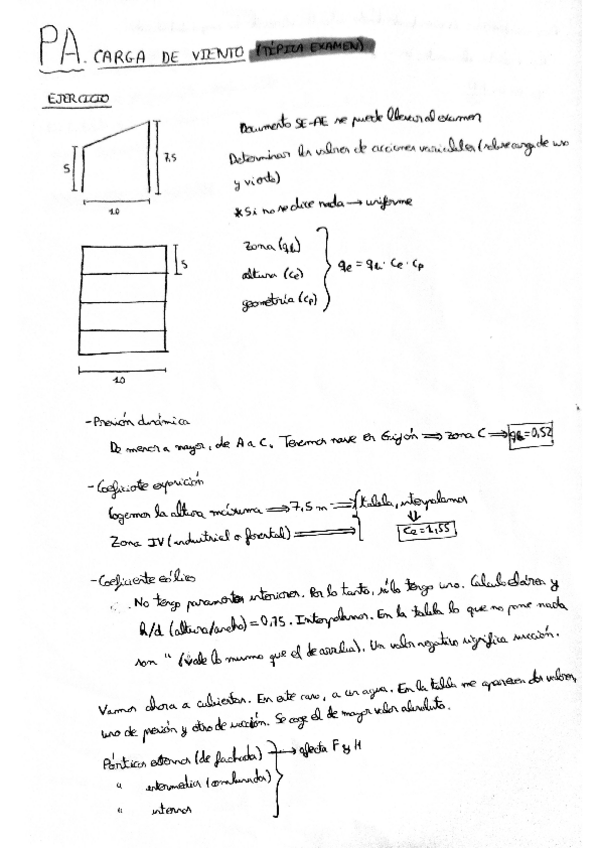 PA. CARGA DE VIENTO (TÍPICA EXAMEN)
EJERCICIO
Documento SE-AE se puede llevar al examen
5
7,5
Determinar los valores de acciones variables (sobrecarga de uso
y viento)
10
*Si no se dice nada → uniforme
zona (qb)
5
altura (ce)
qe = qb · ce · cp
geometría (cp)
10
- Presión dinámica
De menor a mayor, de A a C. Tenemos nave en Gijón ⇒ zona C ⇒ qb=0,52
- Coeficiente exposición
Cogemos la altura máxima ⇒ 7,5 m ⇒ tabla, interpolamos
Zona IV (industrial o forestal) ⇒
Ce = 1,55
- Coeficiente eólico
No tengo paramentos interiores. Por lo tanto, sólo tengo uno. Calculo el área y
h/d (altura/ancho) = 0,75. Interpolamos. En la tabla lo que no pone nada
son " (vale lo mismo que el de arriba). Un valor negativo significa succión.
Vamos ahora a cubiertas. En este caso, a un agua. En la tabla me aparecen dos valores,
uno de presión y otro de succión. Se coge el de mayor valor absoluto.
Pórticos externos (de fachada) → afecta F y H
" intermedios (combinados)
" internos